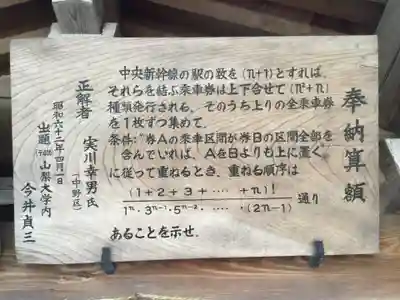 奉納算額
中央新幹線の駅の数を(n+1)とすれば、
それらを結ぶ乗車券は上下合せて(n²+n)
種類発行される。そのうち上りの全乗車券
を1枚ずつ集めて、
条件:"券Aの乗車区間が券Bの区間全部を
含んでいれば、AをBよりも上に置く"
に従って重ねるとき、重ねる順序は
(1+2+3+‥‥+n)!
1ⁿ·3ⁿ⁻¹·5ⁿ⁻²·‥‥·(2n-1)
通り
あることを示せ.
正解者 実川幸男氏
(中野区)
昭和六十二年四月一日
出題 山梨大学内
今井貞三